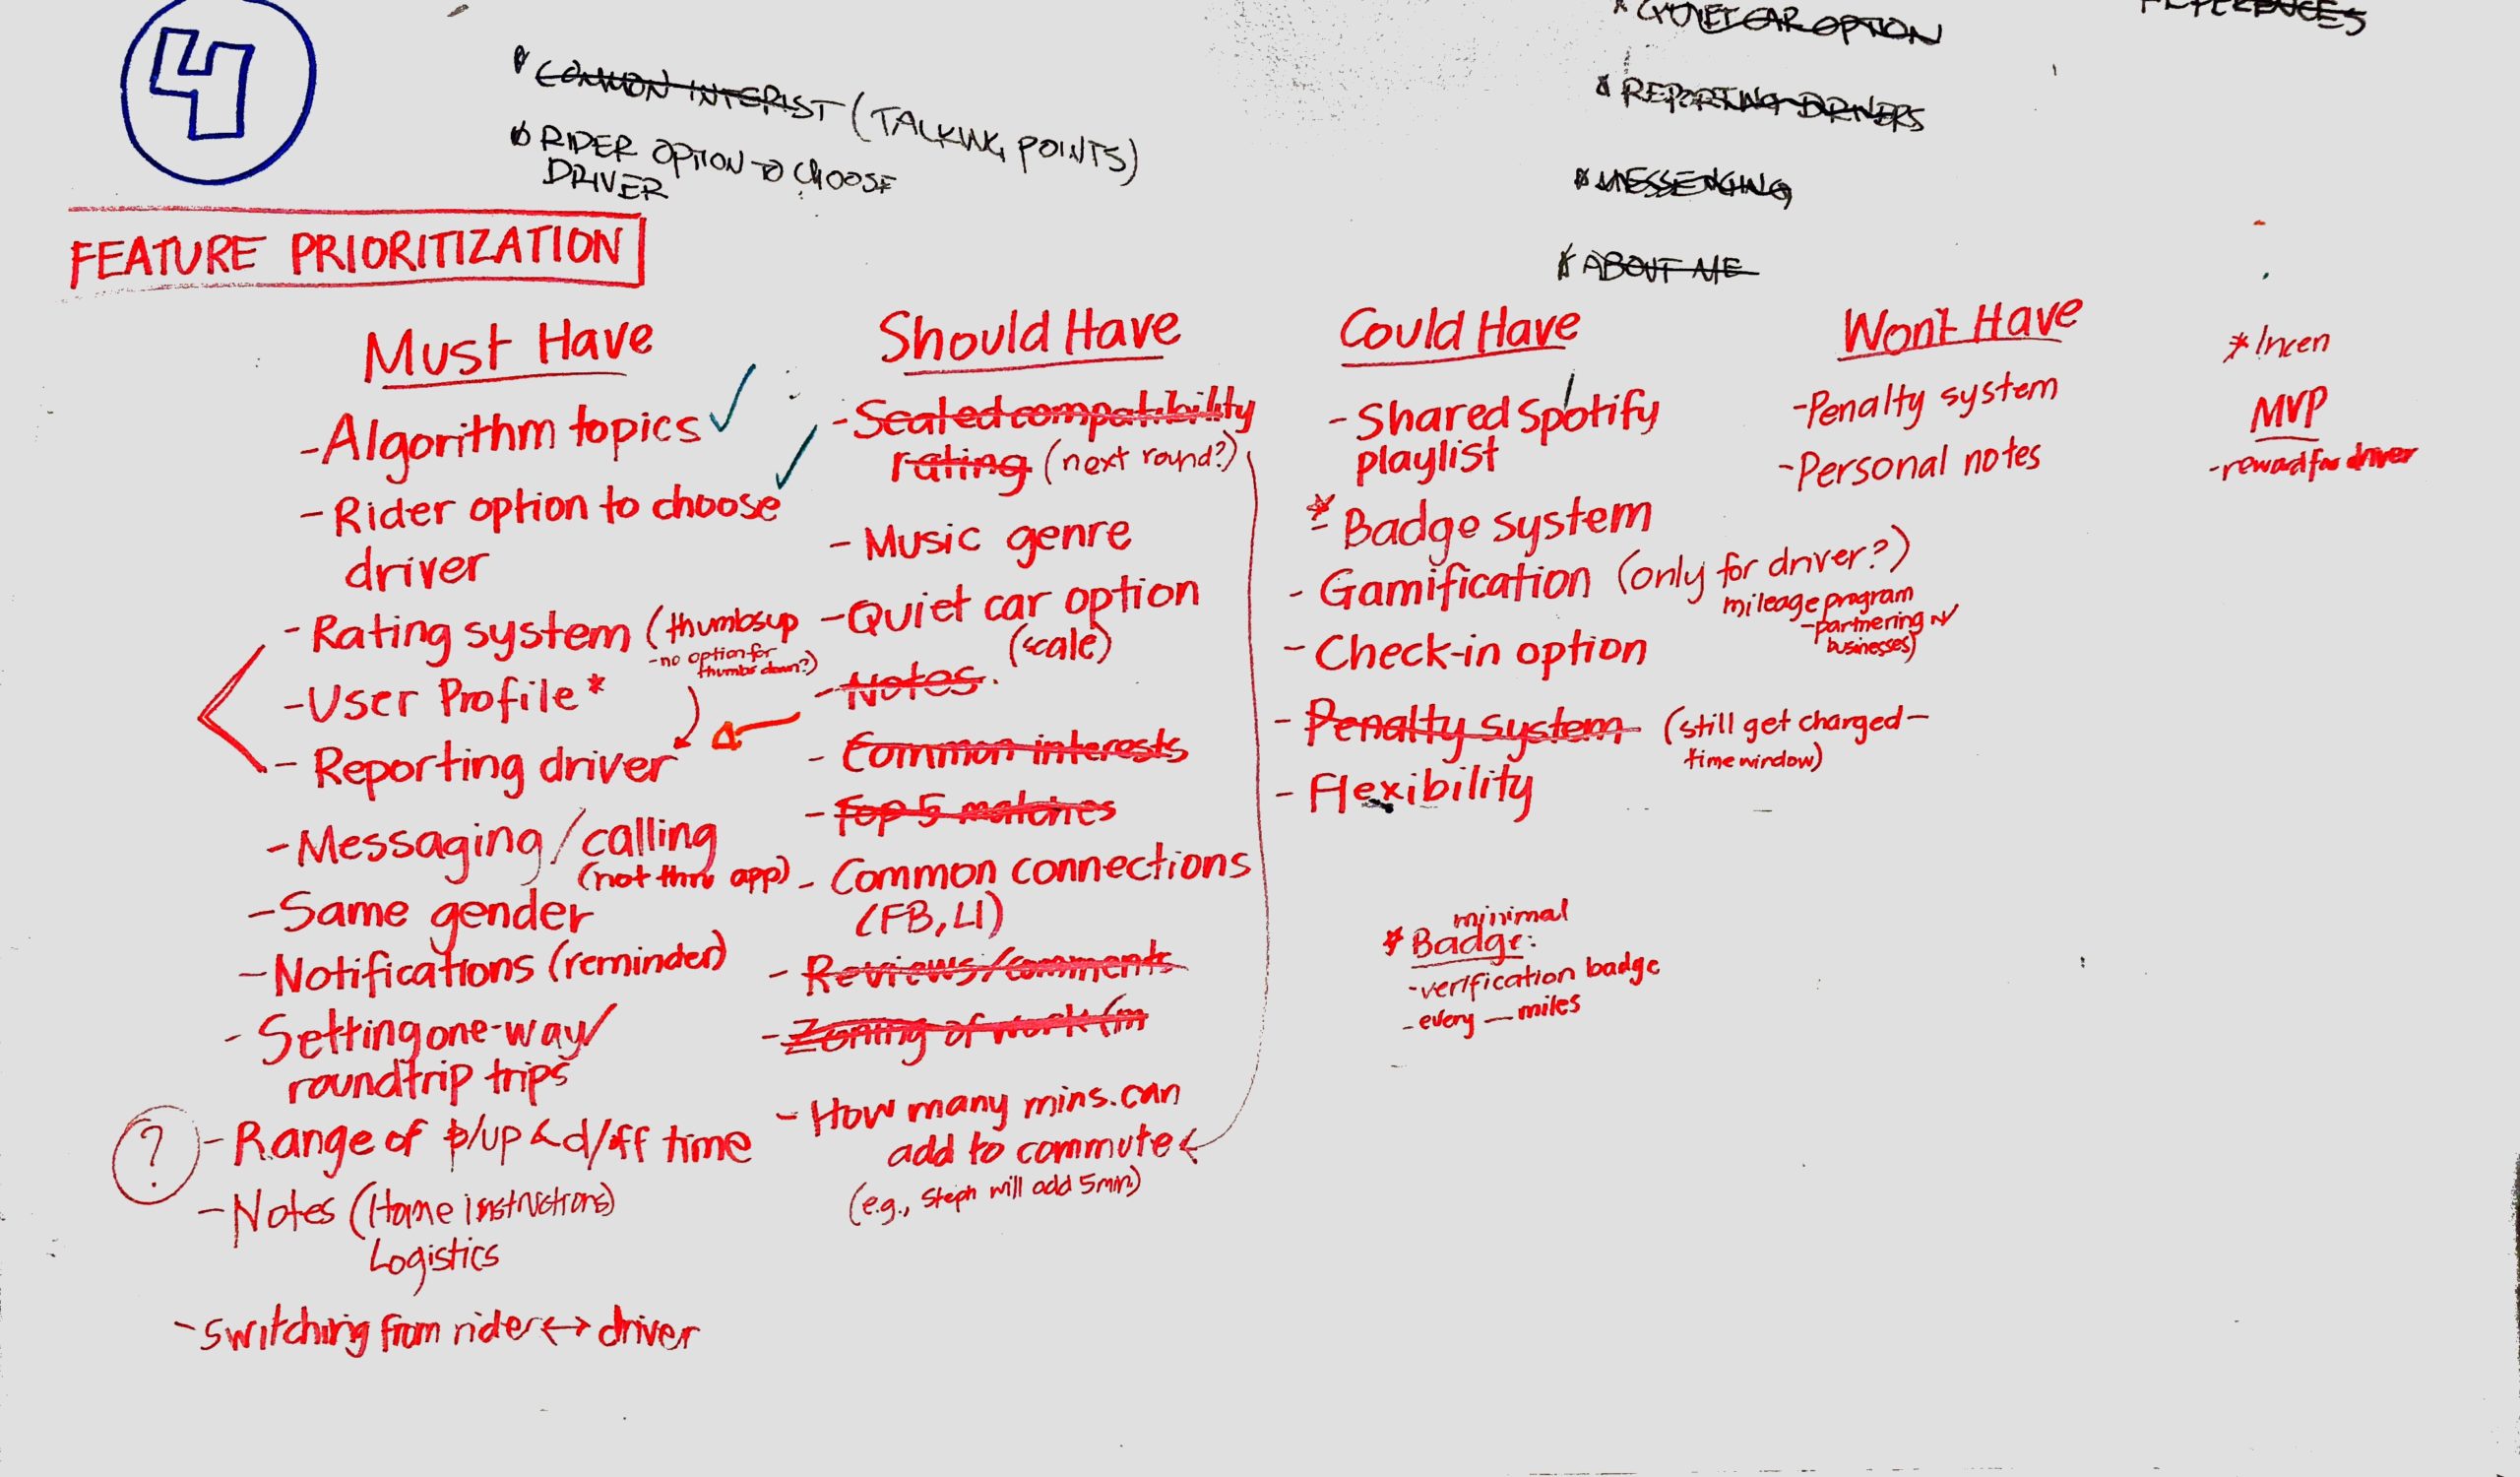 4
COMMON INTERIST (TALKING POINTS)
RIDER OPTION TO CHOOSE
DRIVER
QUIET CAR OPTION
REPORTING DRIVERS
MESSENGING
ABOUT ME
FEATURE PRIORITIZATION
Must Have
- Algorithm topics ✓
- Rider option to choose ✓
driver
- Rating system (thumbs up
- no option for
thumbs down?)
- User Profile *
- Reporting driver
- Messaging / calling
(not thru app)
- Same gender
- Notifications (reminder)
- Setting one-way/
roundtrip trips
? - Range of p/up & d/off time
- Notes (Home instructions)
Logistics
- Switching from rider ↔ driver
Should Have
- Scaled compatibility
rating (next round?)
- Music genre
- Quiet car option
(scale)
- Notes
- Common interests
- Top 5 matches
- Common connections
(FB, LI)
- Reviews/comments
- Zoning of work (m
- How many mins. can
add to commute
(e.g., Steph will add 5min)
Could Have
- Shared Spotify
playlist
* Badge system
- Gamification (only for driver?)
mileage program
- partnering w/
businesses)
- Check-in option
- Penalty system (still get charged -
time window)
- Flexibility
minimal
* Badge:
- verification badge
- every — miles
Won't Have
- Penalty system
- Personal notes
* Incen
MVP
- reward for driver